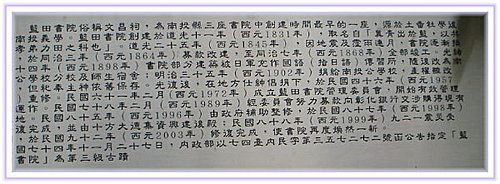 藍田書院俗稱文昌祠，為南投縣三座書院中創建時間最早的一座，源於土音社學設
南投義學。藍田書院創建於道光十一年（西元1831年），取名自「青出於藍，以
孝弟力田之科也」。道光二十五年（西元1845年），因地震及霪雨連月，書院
於同治三年（西元1864年）募款改建，至同治七年（西元1868年）全部竣工。光緒
十四年（西元1898年）書院部分建築被日軍充作國語（指日語）傳習所，隨後改為南
公學校分校及師生宿舍。明治三十五年（西元1902年）捐給南投公學校，直接
但祀奉主神依舊保存。光復後，在地方仕紳倡捐下，於民國四十六年（西元1957
，重修。民國六十一年（西元1972年）成立藍田書院管理委員會，開始有效管理
運作。民國七十八年二月（西元1989年）經委員會努力募款向彰化銀行交涉購得現有
地。民國八十五年（西元1996年），由政府補助整修，於民國八十七年（西元1998年）
修復完成，並由地方大德集資興建後殿；民國八十八年（西元1999年），九二一震災受
，於民國九十二年（西元2003年）修復完成，使書院再度煥然一新。
國七十四年十一月二十七日，內政部以七四臺內民字第三五七二七二號函公告指定「藍
書院」為第三級古蹟